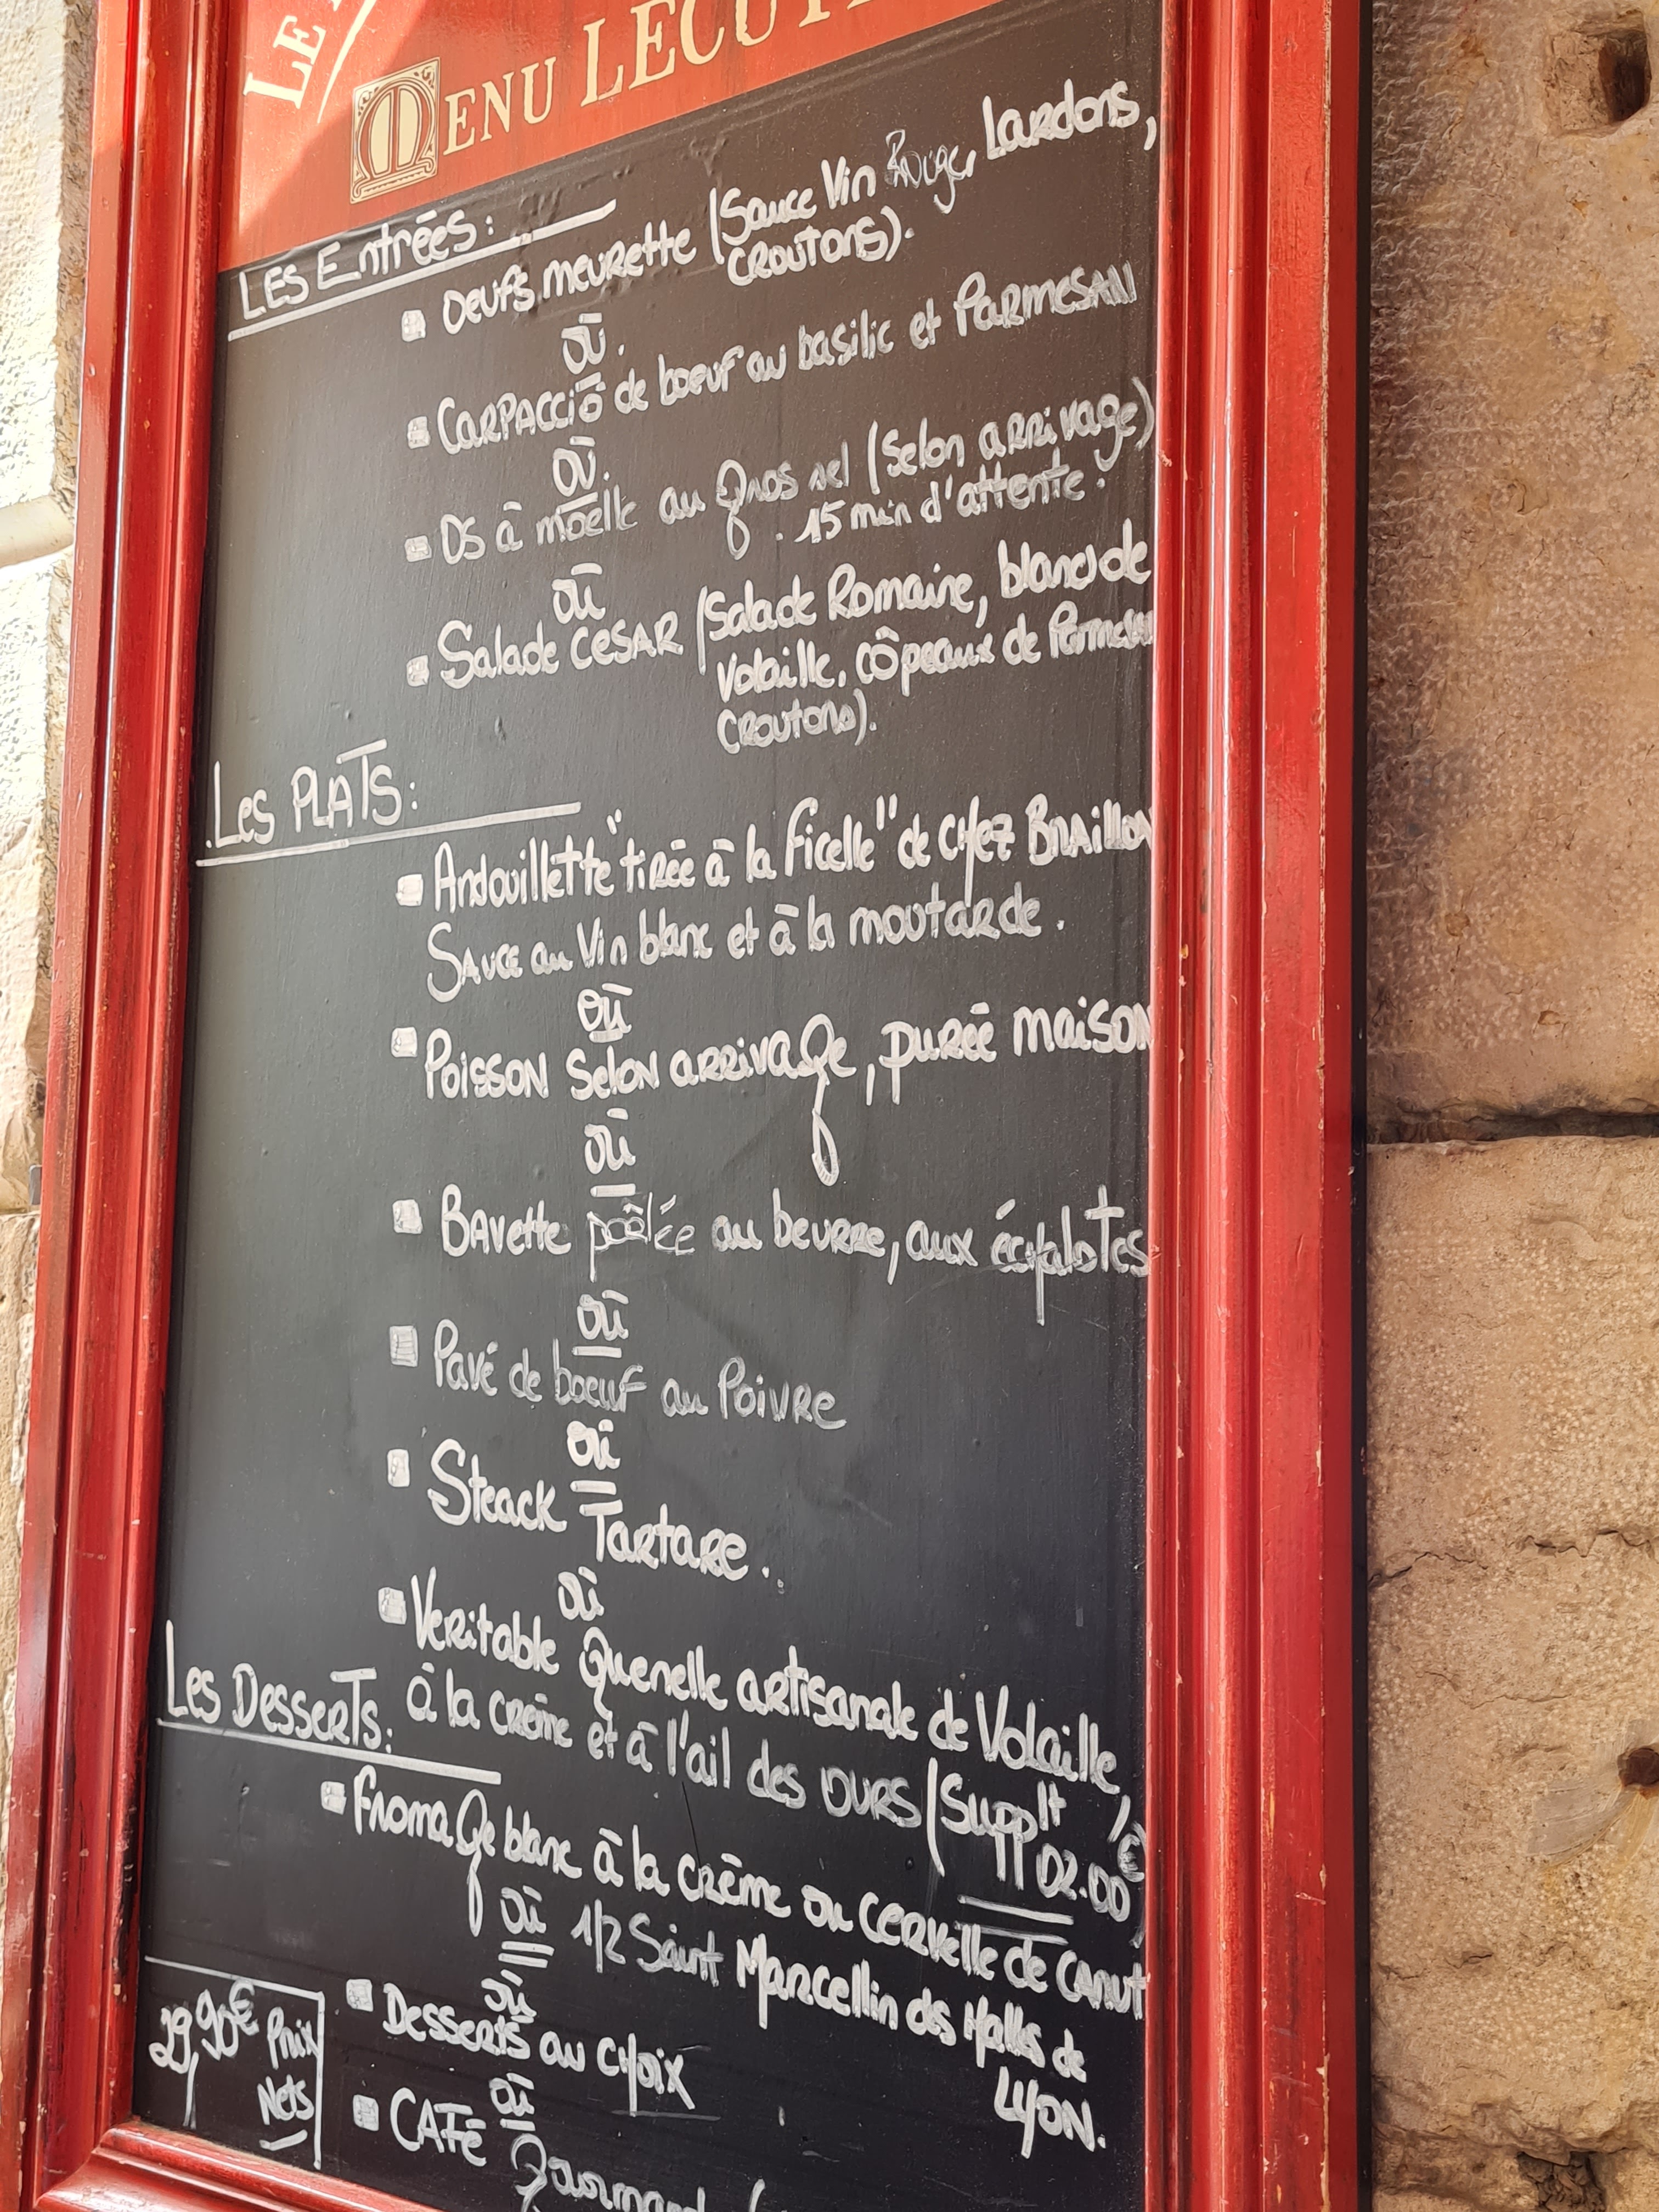 LE
MENU LECU
LES Entrées :
Oeufs meurette (Sauce Vin Rouge, Lardons,
CROUTONS).
OU.
CARPACCIO de boeuf au basilic et PARMESAN
OU.
OS à moelle au gros sel (Selon arrivage)
. 15 min d'attente.
OU
Salade CESAR (Salade Romaine, blanc de
Volaille, côpeaux de Parmesan
CROUTONS).
Les PLATS :
Andouillette "tirée à la ficelle" de chez BRAILLON
SAUCE au Vin blanc et à la moutarde.
OU
POISSON Selon arrivage, purée maison
OU
BAVette poêlée au beurre, aux échalotes
OU
Pavé de boeuf au Poivre
OU
Steack Tartare.
OU
Veritable Quenelle artisanale de Volaille,
à la crème et à l'ail des OURS (Supplt
02.00€
Les Desserts :
Fromage blanc à la crème ou CERVelle de CANUT
OU 1/2 Saint Marcellin des Halles de
LYON.
OU
Desserts au choix
OU
CAFé Gourmand (
29,90€ Prix
Nets